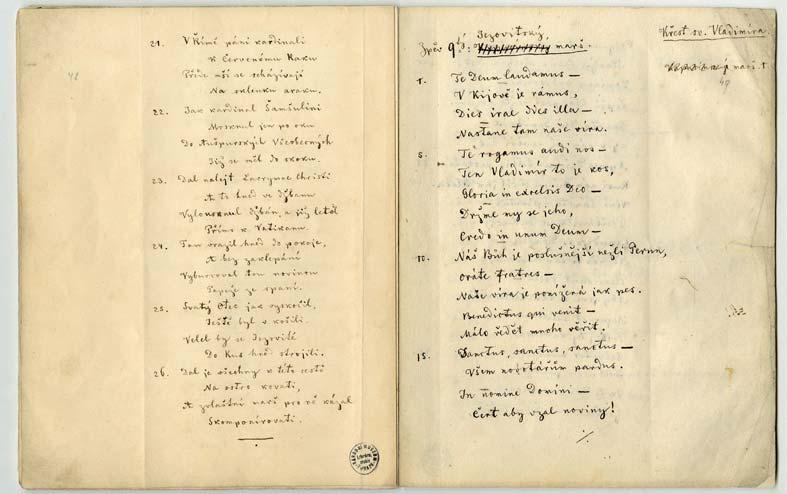 42
21. V Římě páni kardinali
K červenému Raku
Přede mší se scházívají
Na sklenku araku.
22. Jak kardinal Šamšulini
Mrsknul jen po oku
Do Aušpurských Všeobecných
Již se měl do skoku.
23. Dal nalejt Lacrymae Christi
A to hned ve džbanu
Vylousknul džbán, a již letěl
Přímo k Vatikanu.
24. Tam vrazil hned do pokoje,
A bez zaklepání
Vyburcoval tou novinou
Papeže ze spaní.
25. Svatý Otec jak vyskočil,
Ještě byl v košili
Velel by se Jezovité
Do kus hned strojili.
26. Dal je všechny k této cestě
Na ostro kovati,
A zvláštní marš pro ně kázal
Skomponírovati.
Křest sv. Vladimíra.
Jezovitský,
Zpěv 9tý: marš.
marš. 1
49
1. Te Deum laudamus —
V Kijově je rámus,
Dies irae dies illa —
Nastane tam naše víra.
5. Te rogamus audi nos —
Ten Vladimír to je kos,
Gloria in excelsis Deo —
Držme my se jeho,
Credo in unum Deum —
10. Náš Bůh je poslušnější nežli Perun,
Oráte fratres —
Naše víra je ponížená jak pes.
Benedictus qui venit —
Málo vědět mnoho věřit.
15. Sanctus, sanctus, sanctus —
Všem nevěřícím pardus.
In nomine Domini —
Čert aby vzal noviny!